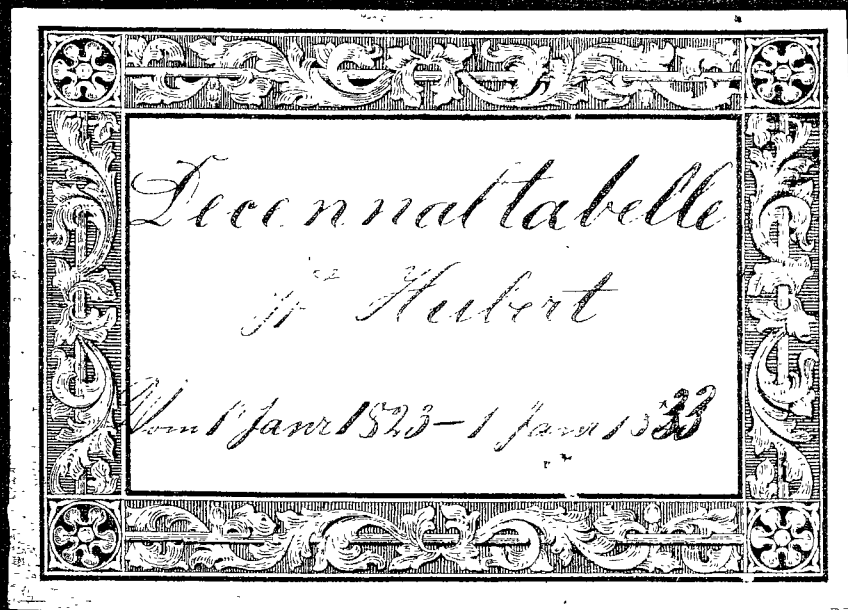 Decennaltabelle
St Hubert
Vom 1 Janr 1823 – 1 Janr 1833